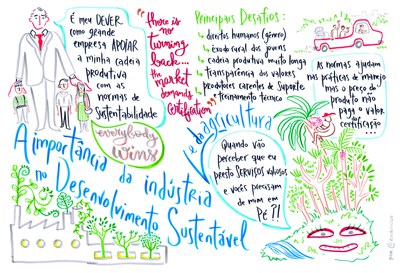 É meu DEVER
como grande
empresa APOIAR
a minha cadeia
produtiva
com as
normas de
sustentabilidade
"there is
no
turning
back...
the
market
demands
certification"
everybody
wins
Principais Desafios:
direitos humanos (gênero)
êxodo rural dos jovens
cadeia produtiva muito longa
transparência dos valores
produtores carentes de suporte
treinamento técnico
As normas ajudam
nas práticas de manejo
mas o preço do
produto não
paga o valor
certificação...
A importância da indústria
e da agricultura
no Desenvolvimento
Sustentável
Quando vão
perceber que eu
presto SERVIÇOS VALIOSOS
e vocês precisam
de mim em
PÉ?!